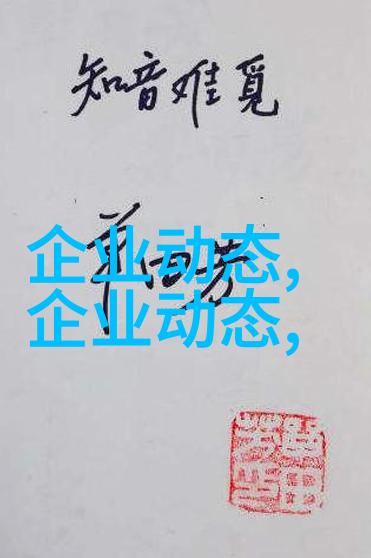 知音难觅
单田芳
企业动态,
企业动态,